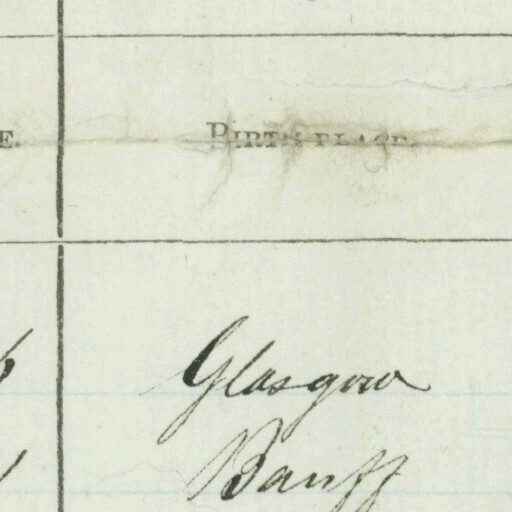 E. BIRTH PLACE.
Glasgow
Banff